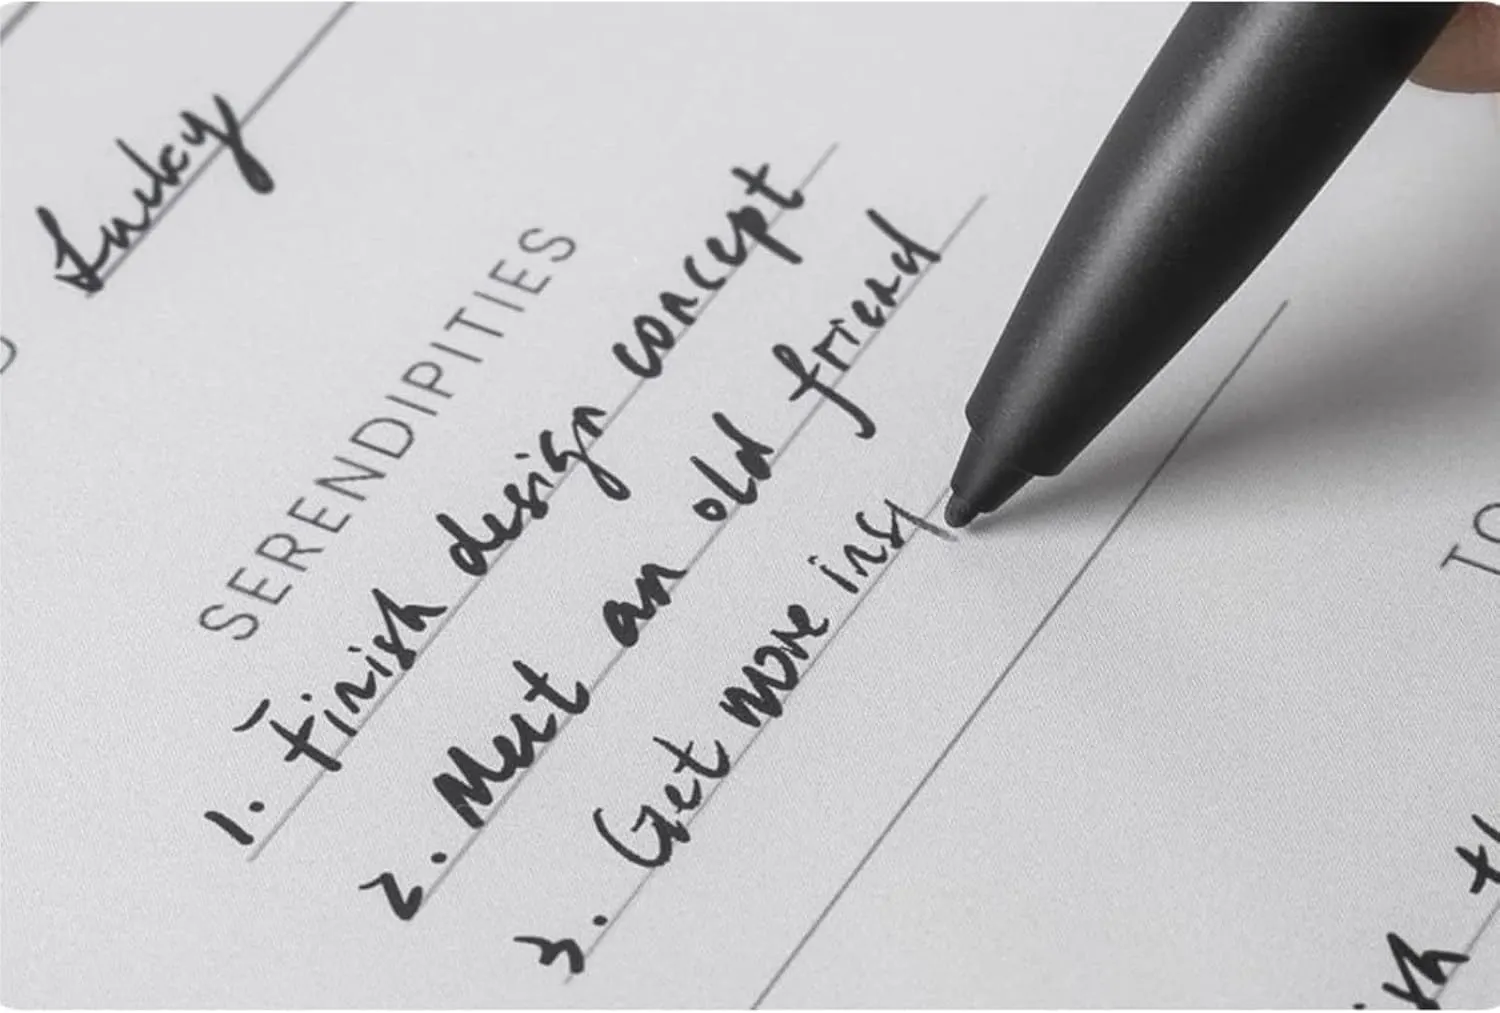 Lucky
SERENDIPITIES
1. Finish design concept
2. Meet an old friend
3. Get more ins